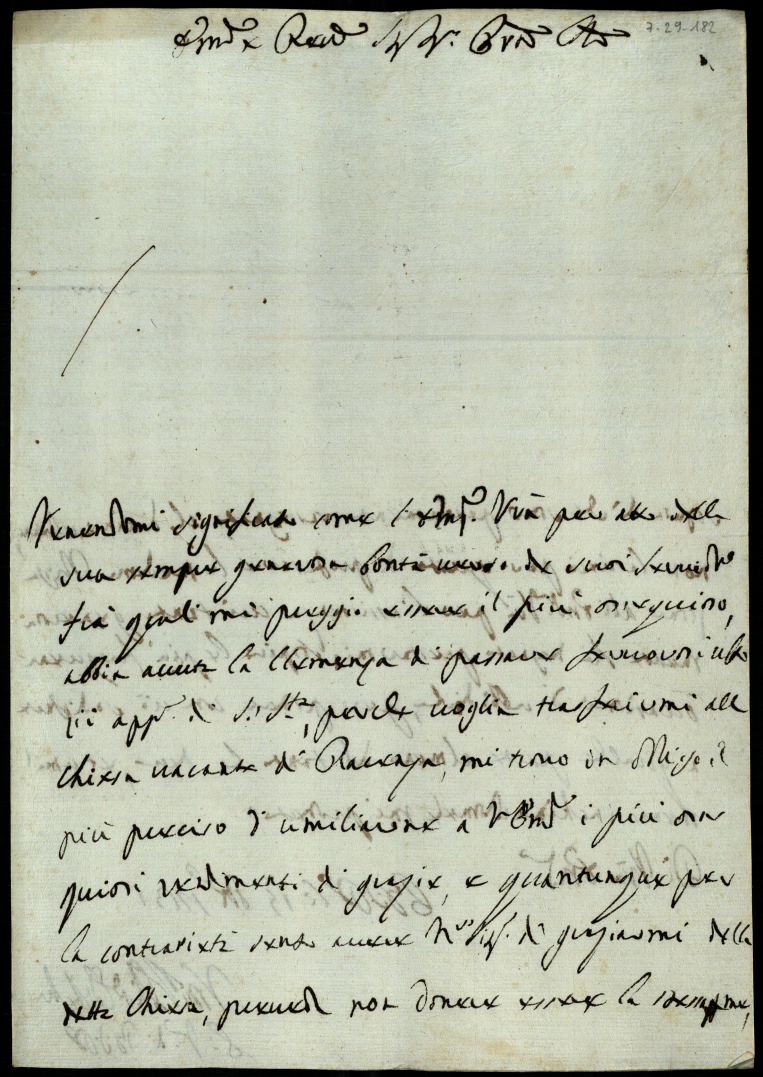 Em.o e Rev.mo Sig.r
7-29-182
Venendomi significato come l'Em.a V.ra per atto della
sua sempre generosa bontà verso de suoi servid.ri
frà quali mi preggio essere il più ossequioso,
abbia avuta la Clemenza di passare favorevoli
app.o di S. S.tà, perche voglia trasferirmi alla
Chiesa vacante di Ravenna, mi trovo in obligo il
più preciso d'umiliarne a V. Em.a i più osse
quiosi rendimenti di grazie, e quantunque per
la contrarietà sento avere N.ro Sig.e di graziarmi della
detta Chiesa, preveda non dovere essere la